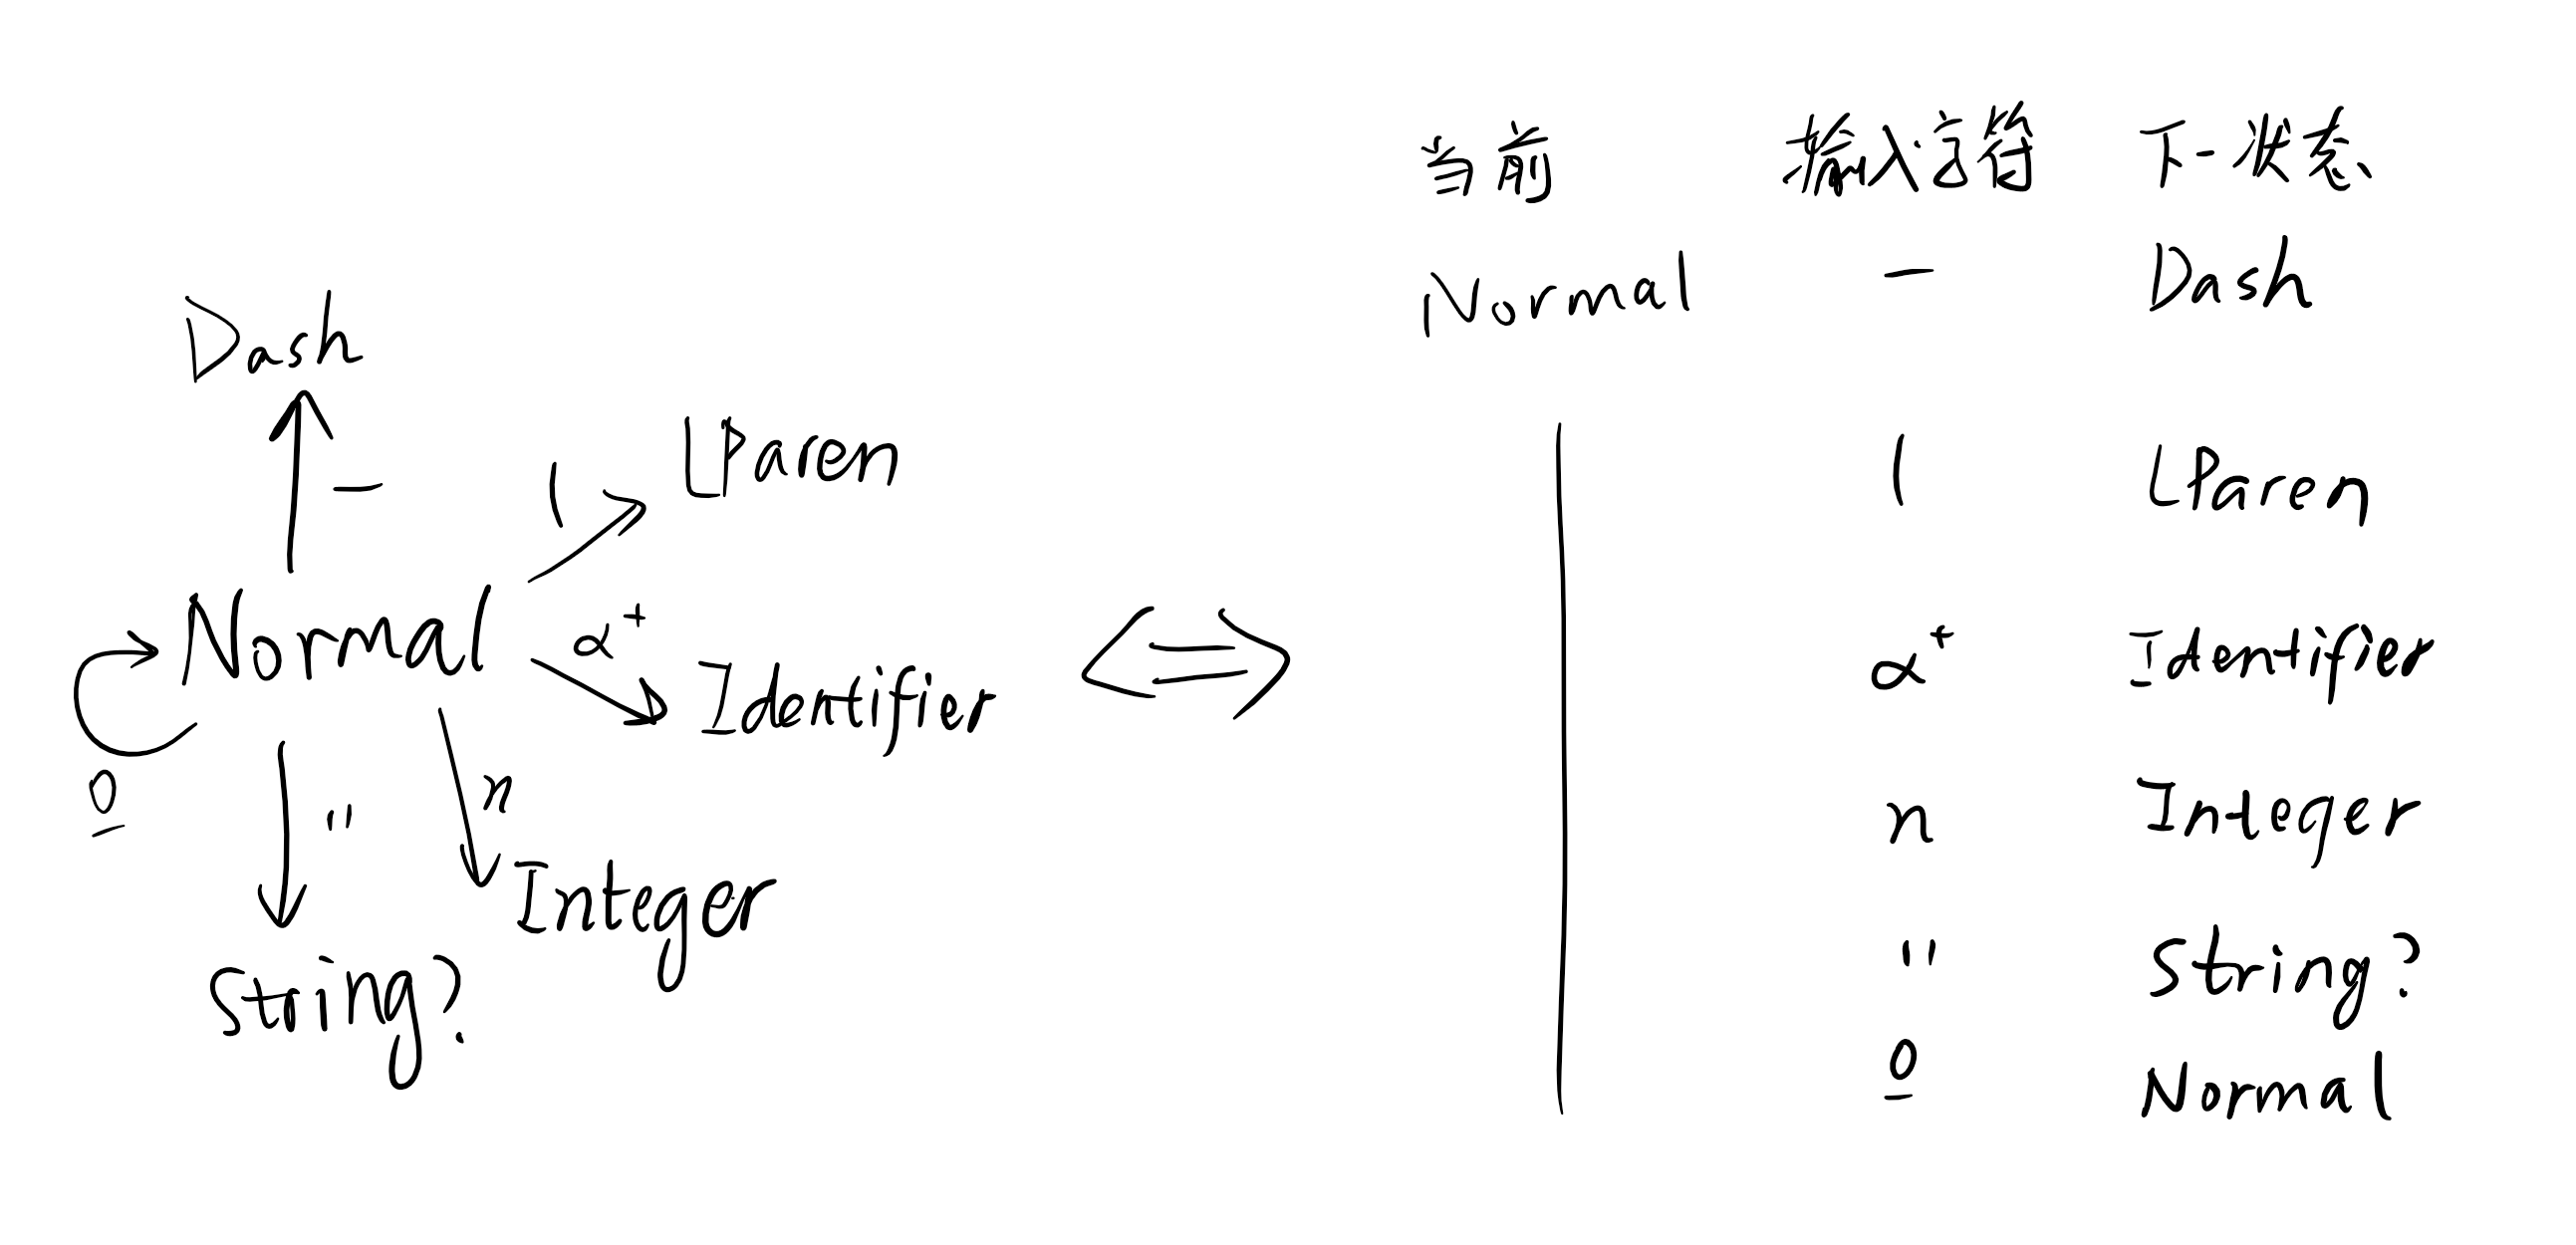 Dash
—
( LParen
Normal
α⁺
Identifier
o̲
"
n
Integer
String?
⟺
当前 输入字符 下一状态
Normal — Dash
( LParen
α⁺ Identifier
n Integer
" String?
o̲ Normal